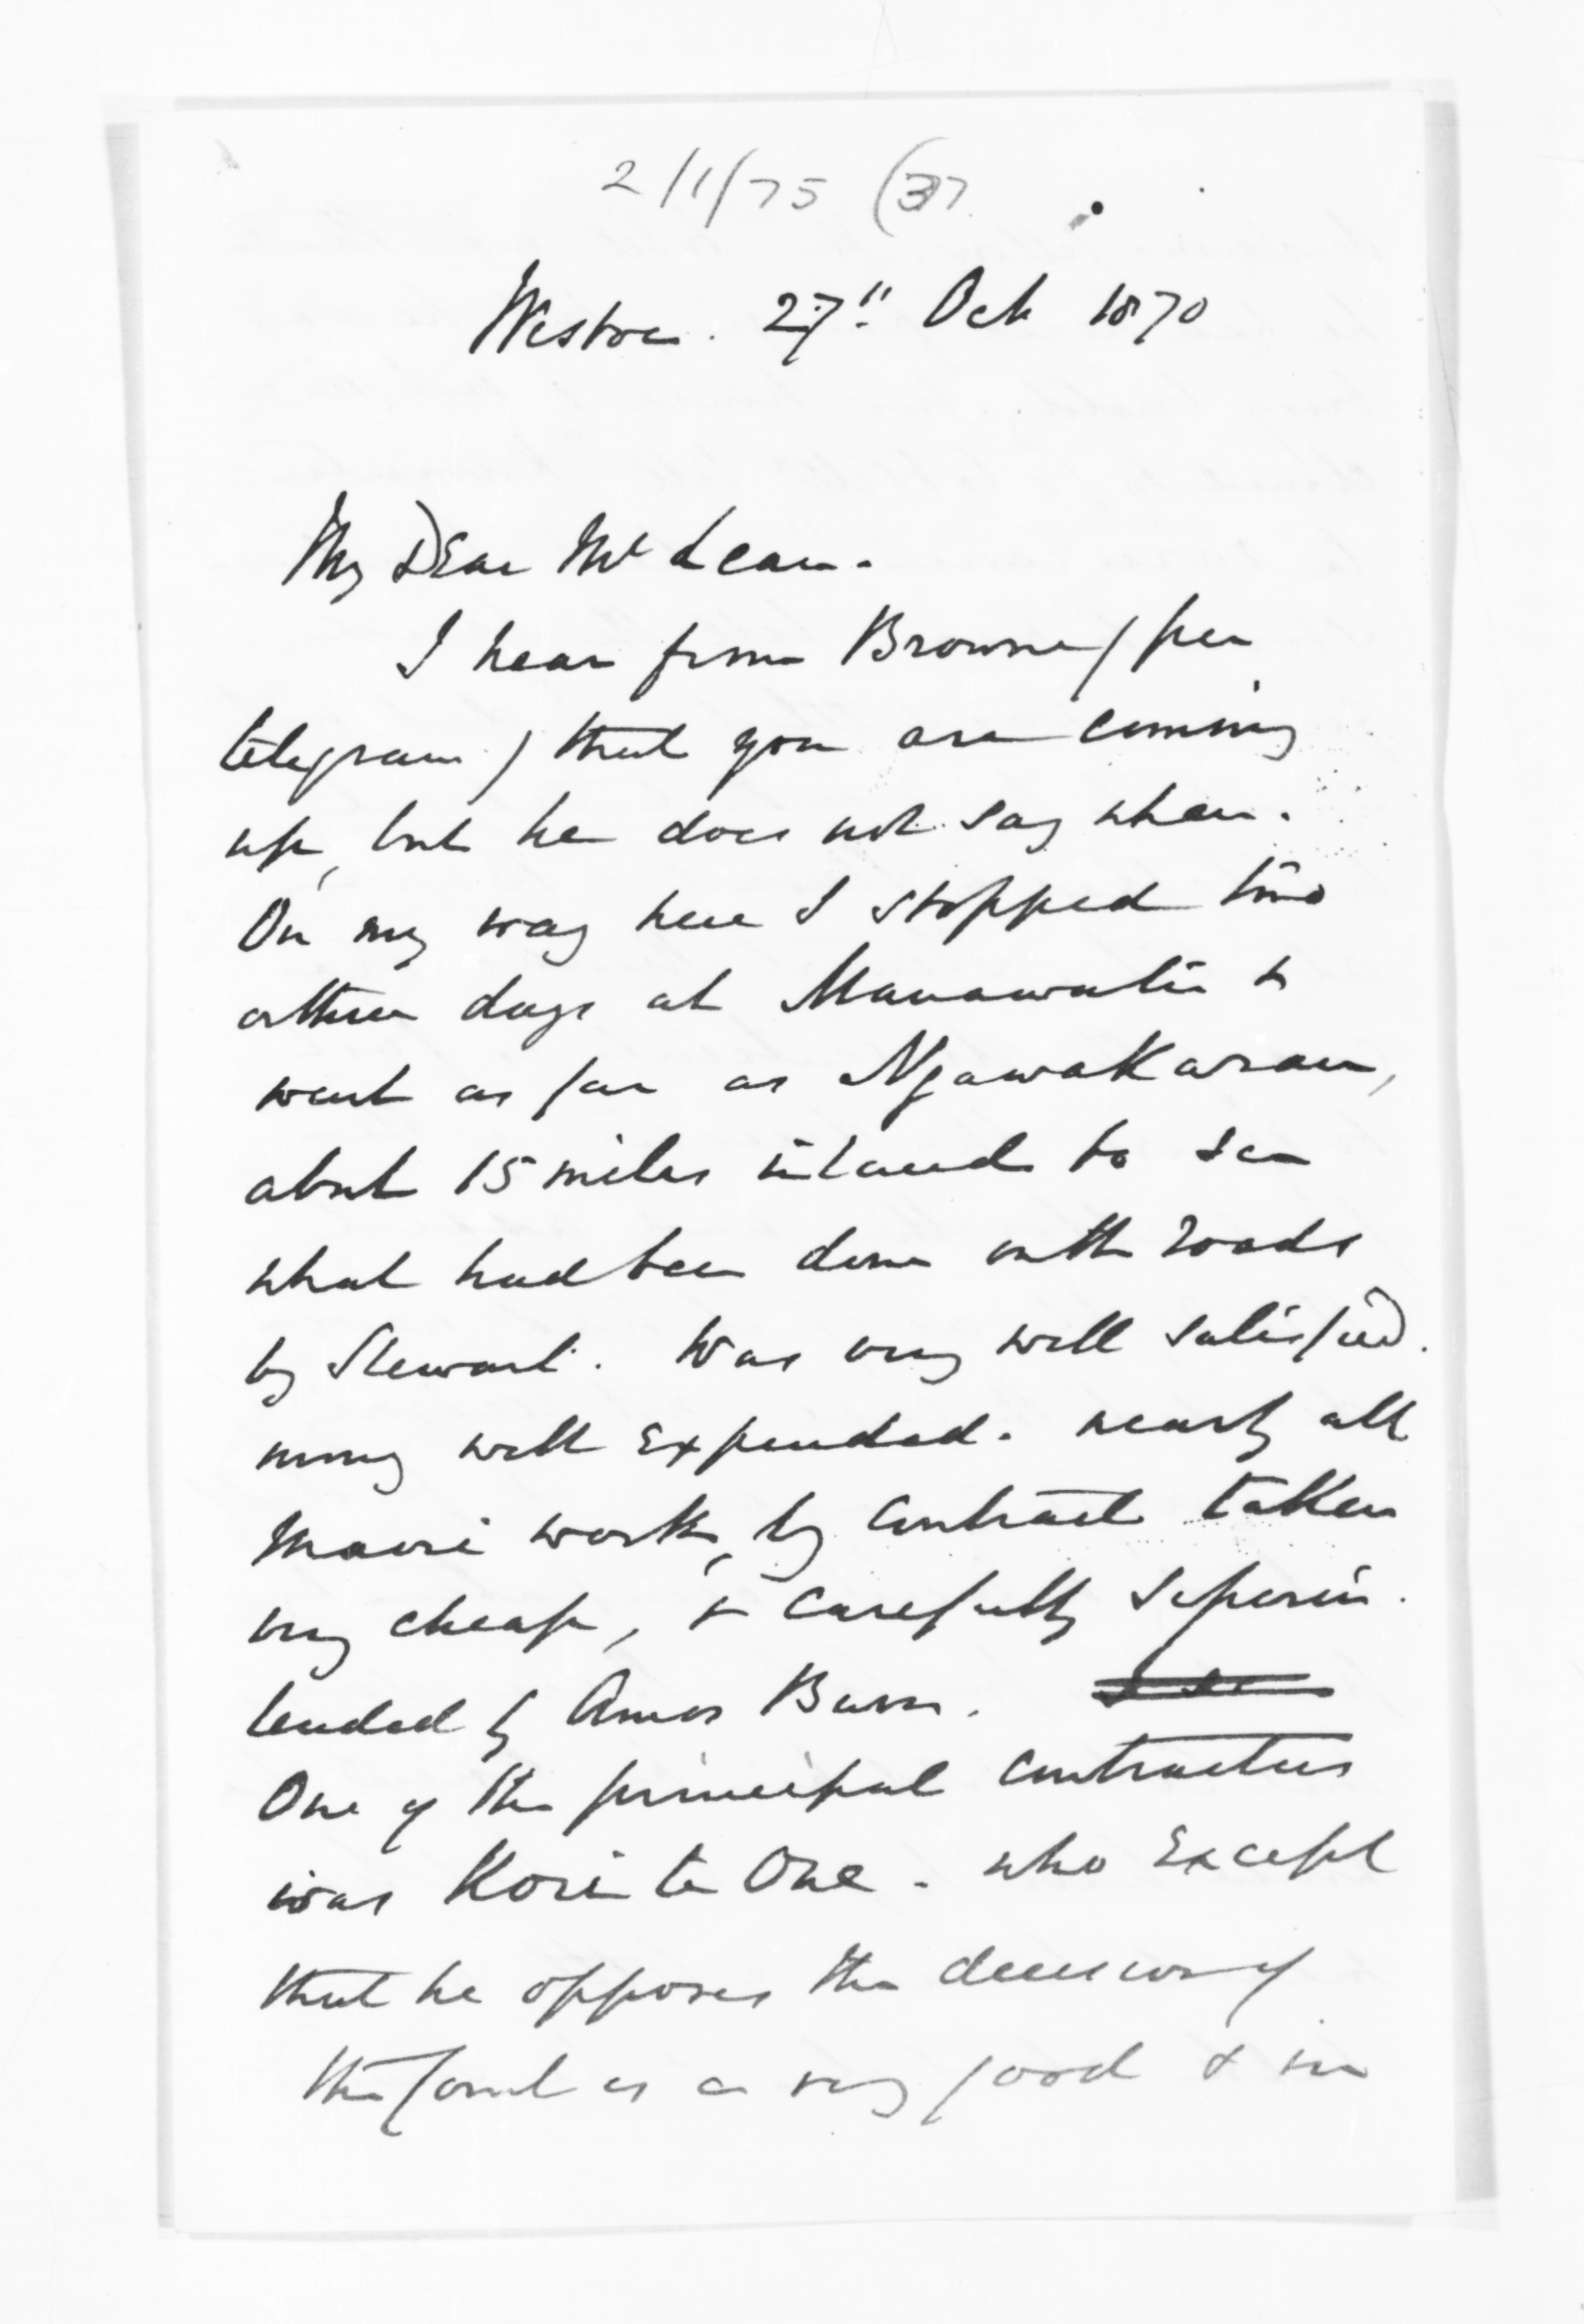 2/1/75 (37
Westoe. 27" Oct 1870
My Dear McLean.
I hear from Browne (per
telegram) that you are coming
up, but he does not say when.
On my way here I stopped two
or three days at Manawatu &
went as far as Ngawakarau,
about 15 miles inland to see
what had been done on the roads
by Stewart. Was very well satisfied.
money well expended. nearly all
Maori work, by contract taken
very cheap, & carefully superin-
tended by Amos Burr.
One of the principal contractors
was Kori te One. who except
that he opposes the decision of
the Court is a very good &